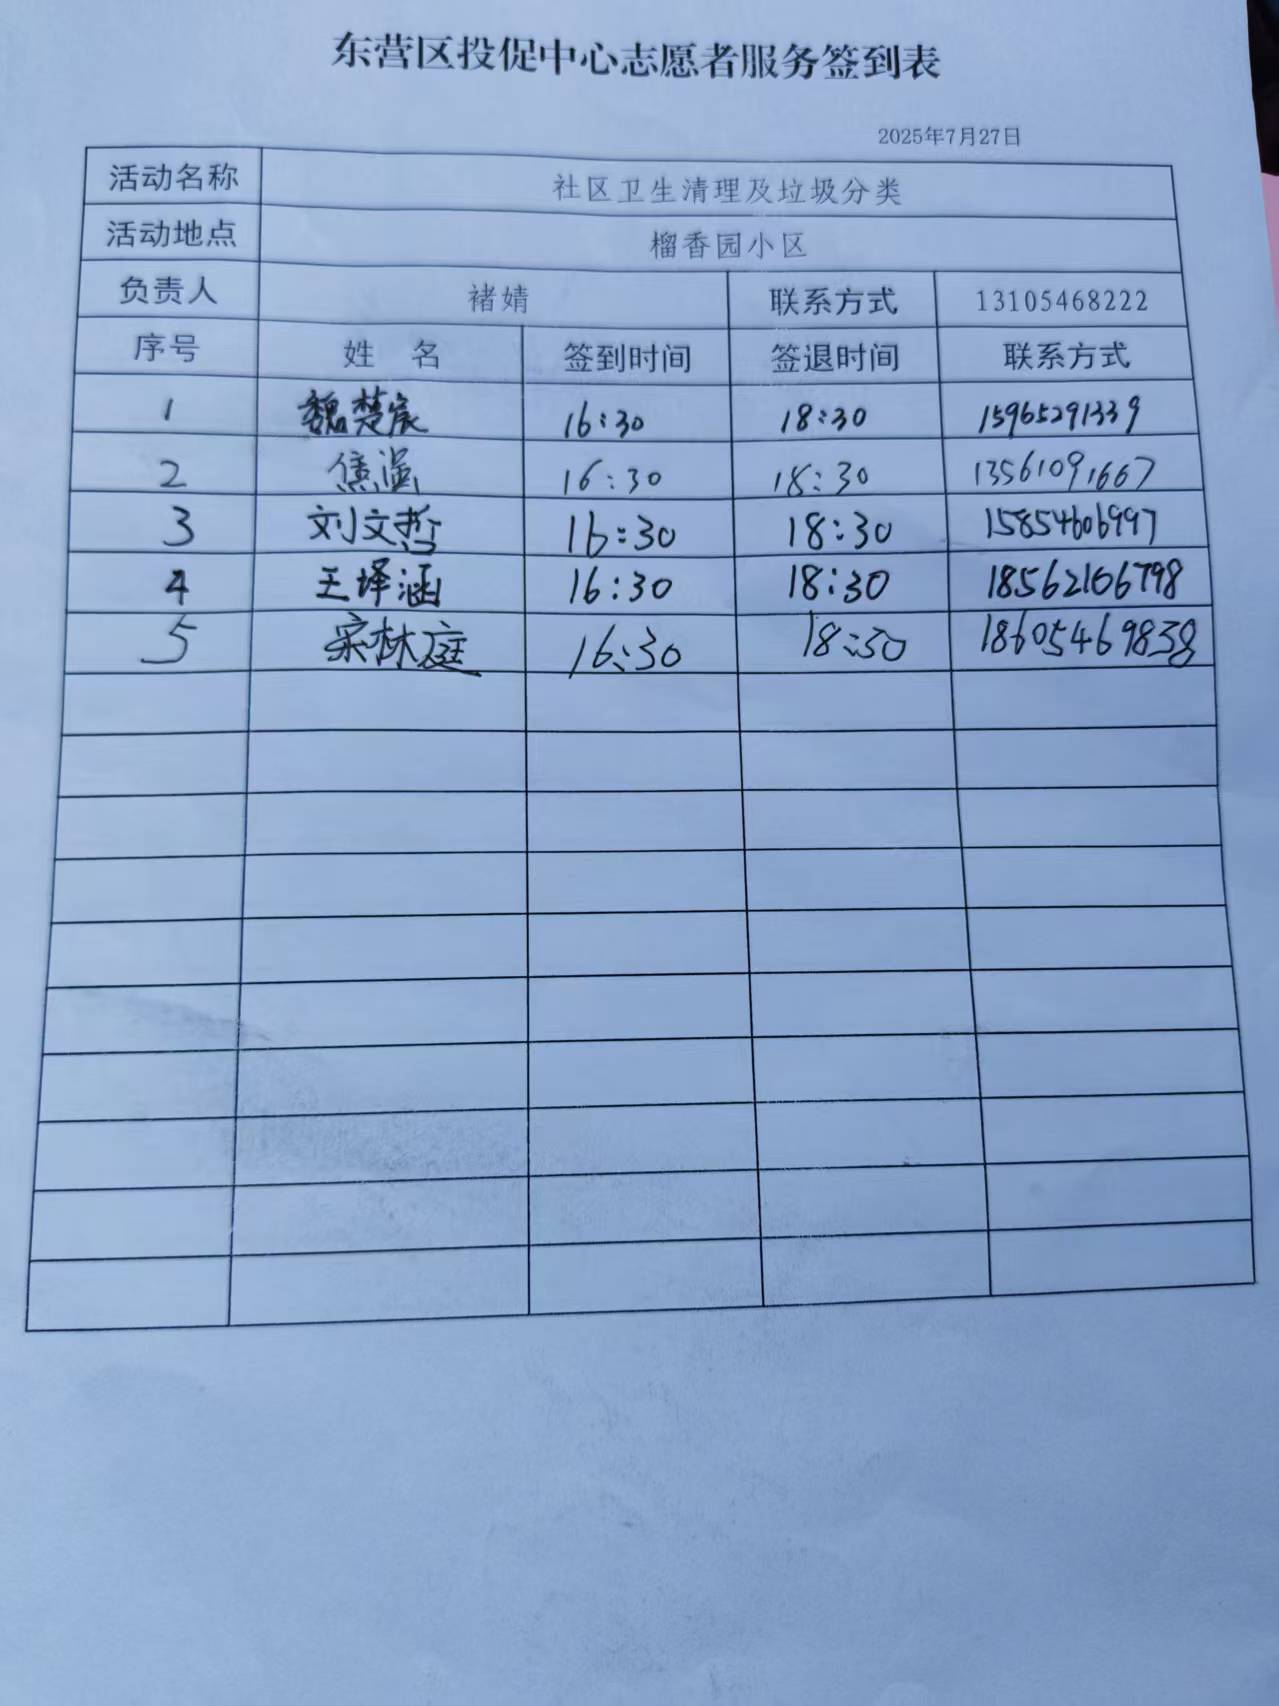 东营区投促中心志愿者服务签到表
2025年7月27日
活动名称 社区卫生清理及垃圾分类
活动地点 榴香园小区
负责人 褚婧 联系方式 13105468222
序号 姓 名 签到时间 签退时间 联系方式
1 魏楚宸 16:30 18:30 15965291339
2 焦温 16:30 18:30 13561091667
3 刘文哲 16:30 18:30 15854606997
4 王垾涵 16:30 18:30 18562106798
5 宋林庭 16:30 18:30 18605469838